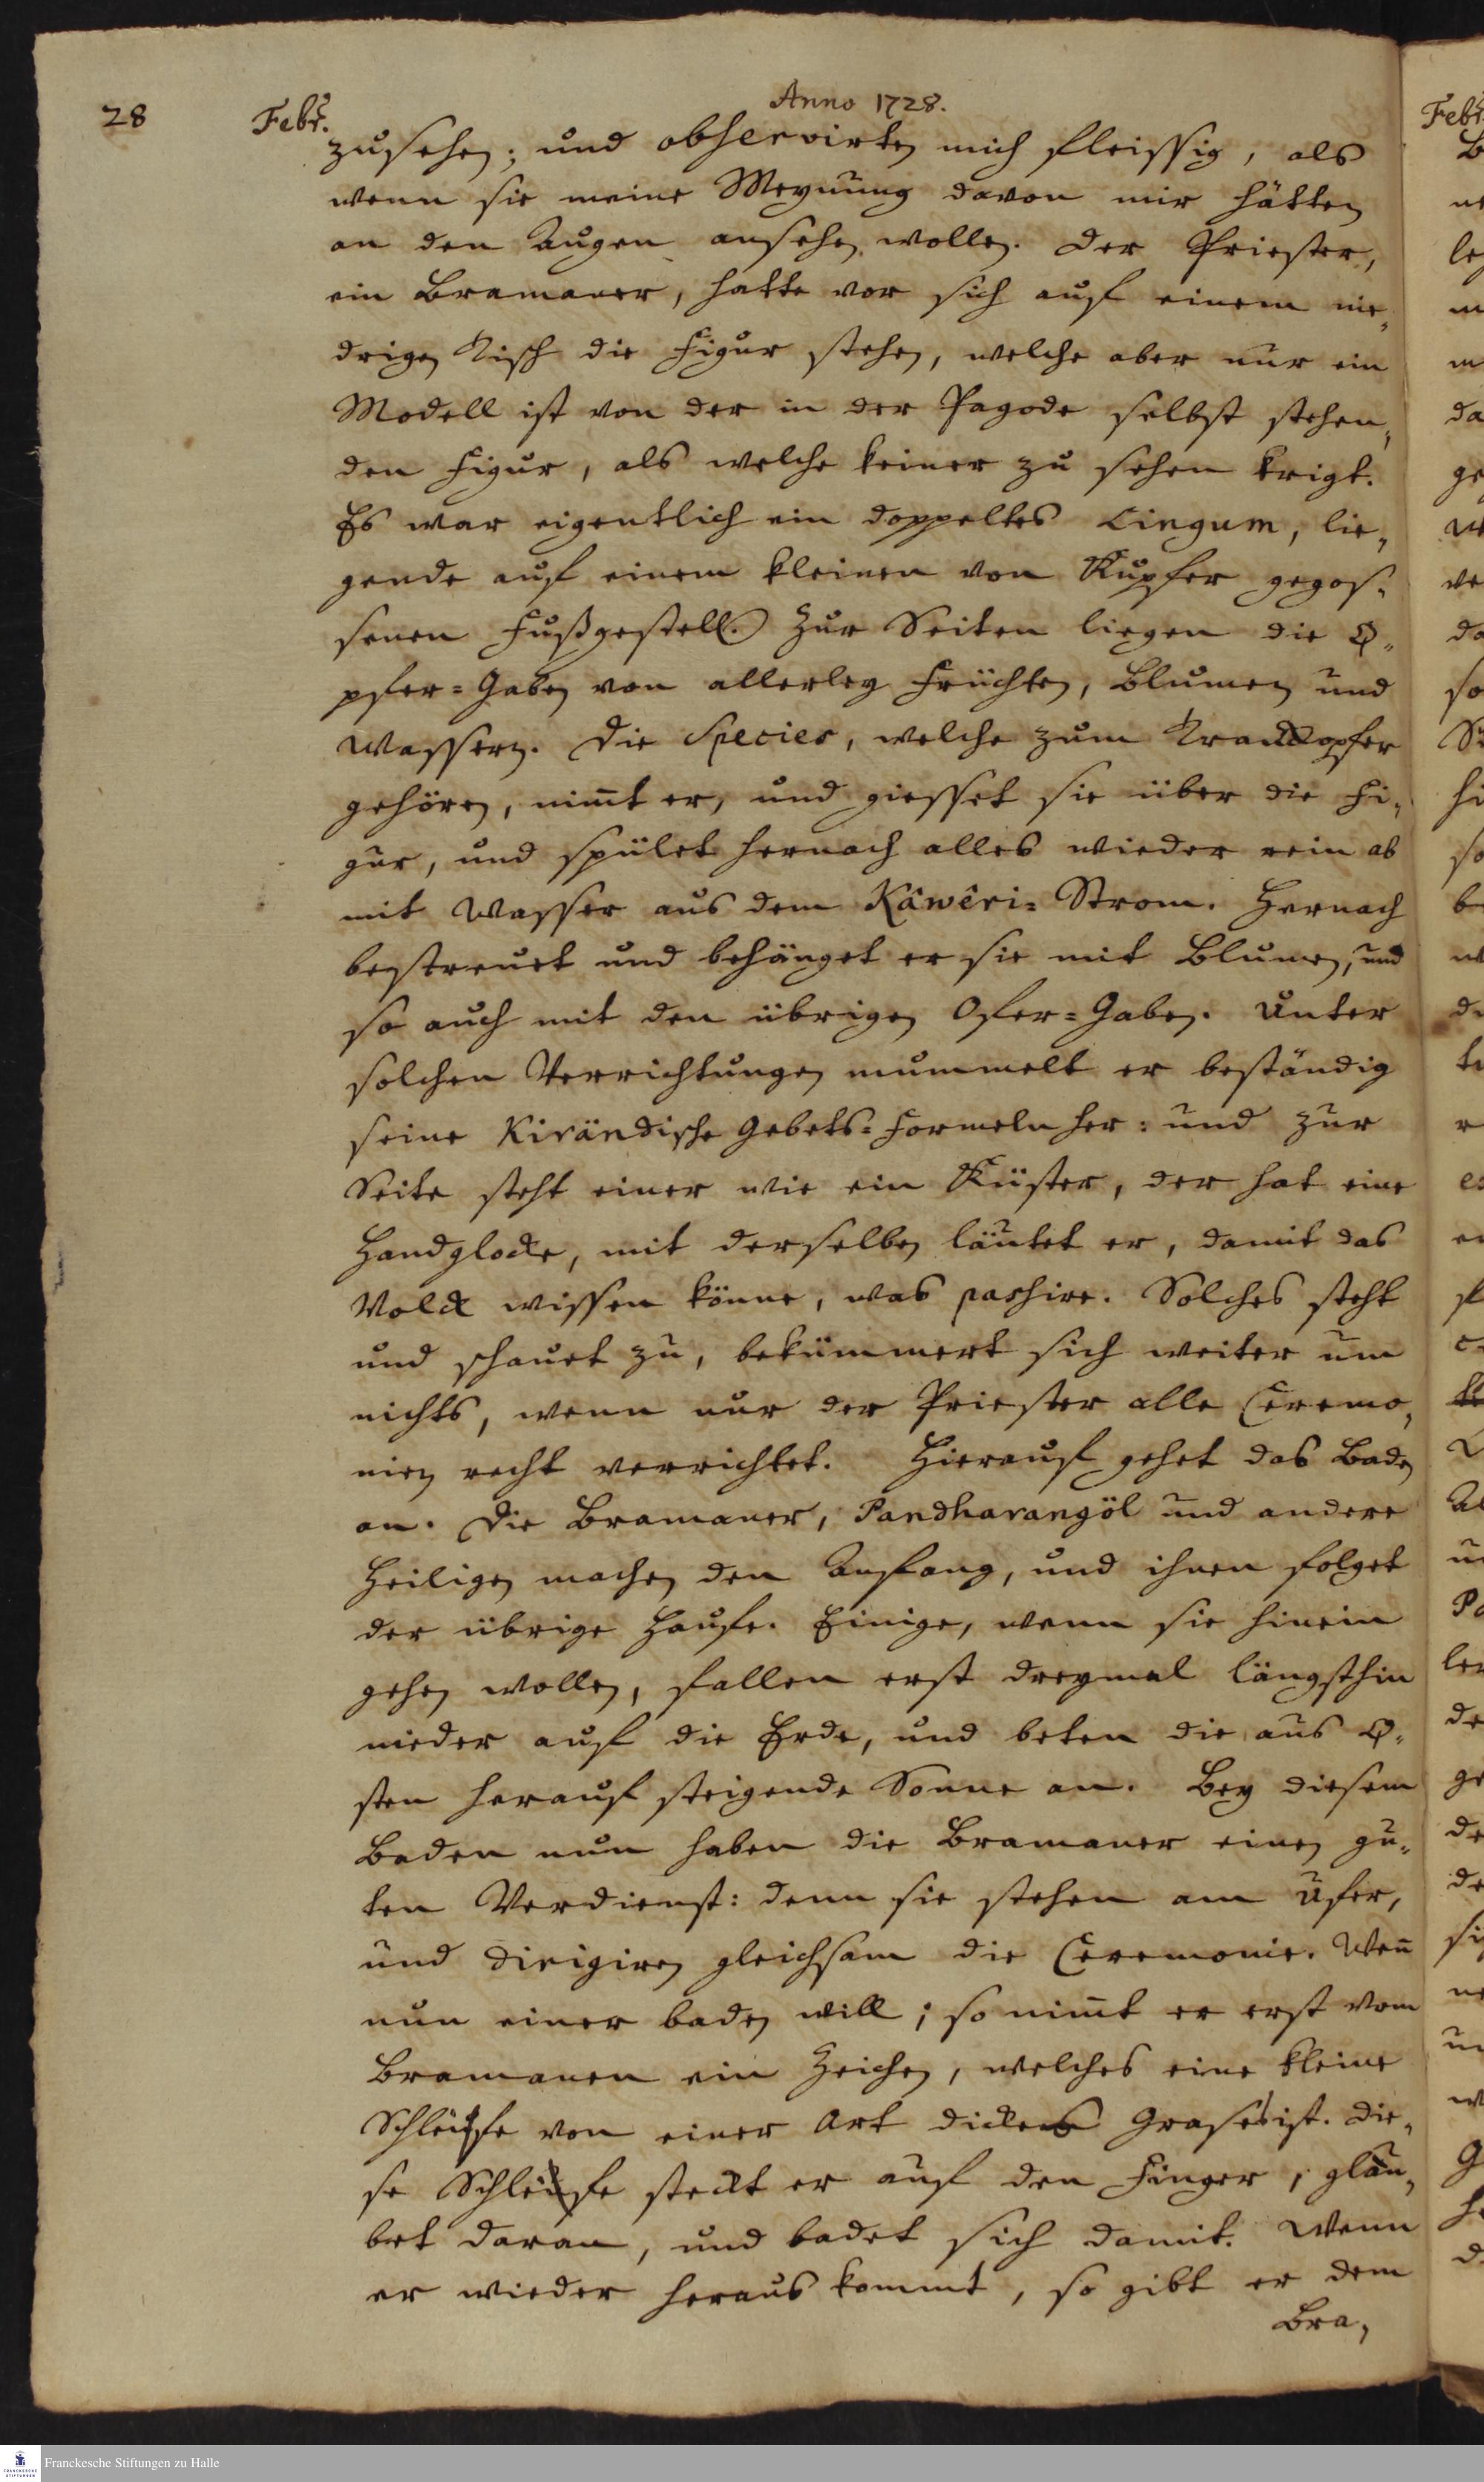 28
Febr.
Anno 1728.
zusehen; und observirten mich fleissig, als
wenn sie meine Meynung davon mir hätten
an den Augen ansehen wollen. Der Priester,
ein Bramaner, hatte vor sich auf einem nie-
drigen Tisch die Figur stehen, welche aber nur ein
Modell ist von der in der Pagode selbst stehen-
den Figur, als welche keiner zu sehen krigt.
Es war eigentlich ein doppeltes Lingum, lie-
gende auf einem kleinen von Kupfer gegos-
senen Fußgestell. Zur Seiten liegen die O-
pfer-Gaben von allerley Früchten, Blumen und
Wassern. Die Species, welche zum Tranckopfer
gehören, nim̄t er, und giesset sie über die Fi-
gur, und spület hernach alles wieder rein ab
mit Wasser aus dem Kâwêri-Strom. Hernach
bestreuet und behänget er sie mit Blumen, und
so auch mit den übrigen Ofer-Gaben. Unter
solchen Verrichtungen mummelt er beständig
seine Kirändische Gebets-Formeln her: und zur
Seite steht einer wie ein Küster, der hat eine
Handglocke, mit derselben läutet er, damit das
Volck wissen könne, was passire. Solches steht
und schauet zu, bekümmert sich weiter um
nichts, wenn nur der Priester alle Ceremo-
nien recht verrichtet. Hierauf gehet das Baden
an. Die Bramaner, Pandharangöl und andere
Heiligen machen den Anfang, und ihnen folget
der übrige Haufe. Einige, wenn sie hinein
gehen wollen, fallen erst dreymal längsthin
nieder auf die Erde, und beten die aus O-
sten herauf steigende Sonne an. Bey diesem
Baden nun haben die Bramaner einen gu-
ten Verdienst: denn sie stehen am Ufer,
und dirigiren gleichsam die Ceremonie. Wen̄
nun einer baden will; so nim̄t er erst vom
Bramanen ein Zeichen, welches eine kleine
Schleife von einer Art dickes Grases ist. Die-
se Schleife steckt er auf den Finger, gläu-
bet daran, und badet sich damit. Wenn
er wieder heraus kommt, so gibt er dem
Bra-
Febr.
Franckesche Stiftungen zu Halle